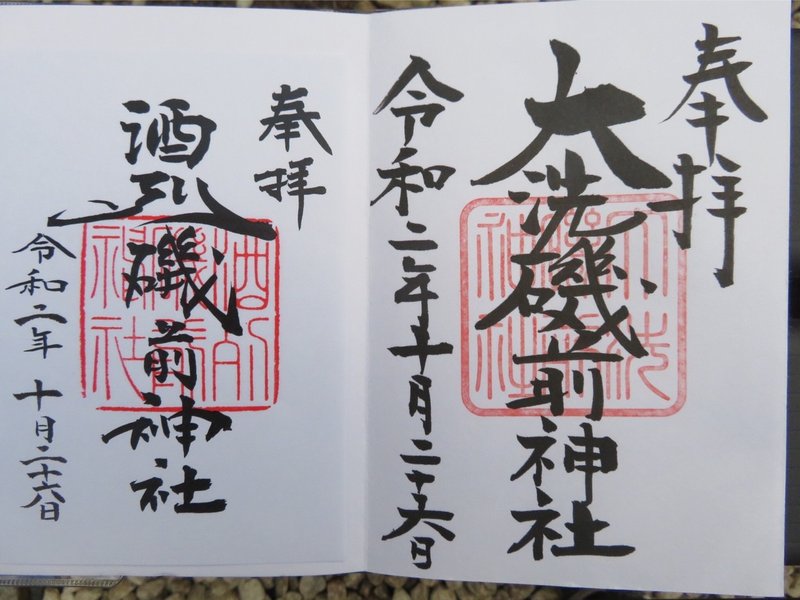 奉拝
大洗磯前神社
令和二年十月二十六日
奉拝
酒列磯前神社
令和二年十月二十六日